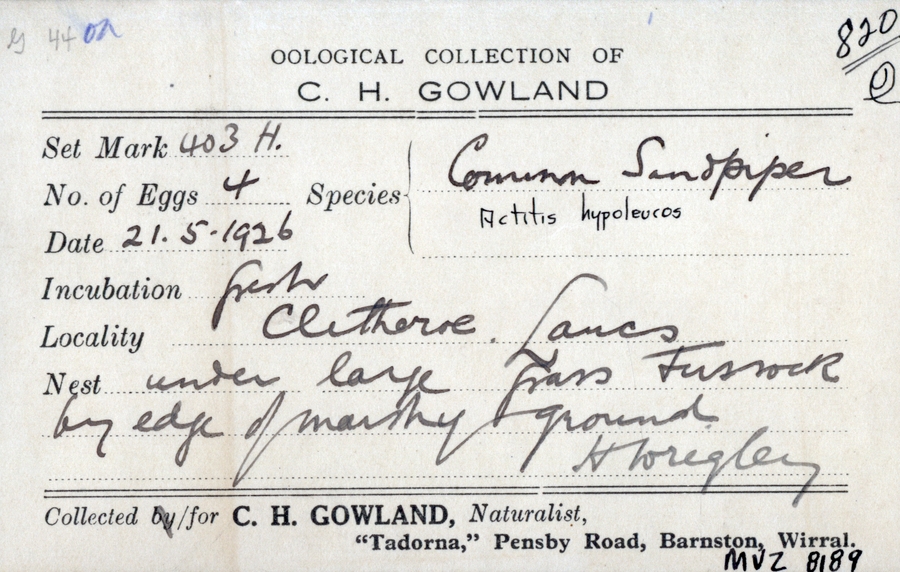 44 on
820
1
OOLOGICAL COLLECTION OF
C. H. GOWLAND
Set Mark 403 H.
No. of Eggs 4 Species Common Sandpiper
Actitis hypoleucos
Date 21. 5-1926
Incubation fresh
Locality Clitheroe. Lancs
Nest under large Grass Tussock
by edge of marshy ground
H Wrigley
Collected by/for C. H. GOWLAND, Naturalist,
"Tadorna," Pensby Road, Barnston, Wirral.
MVZ 8189